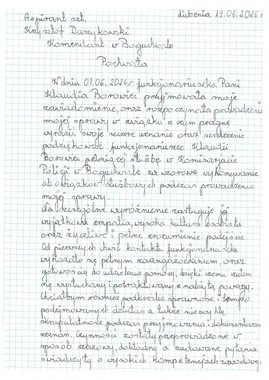 Aspirant szt. Lubenia 13.06.2026r
Krzysztof Daszykowski
Komendant w Boguchwale
Pochwała
W dniu 01.06.2026r funkcjonariuszka Pani
Klaudia Borowiec przyjmowała moje
zawiadomienie, oraz rozpoczynała prowadzenie
mojej sprawy w związku z czym pragnę
wyrazić swoje szczere uznanie oraz serdeczne
podziękowanie funkcjonariuszce Klaudii
Borowiec pełniącej służbę w Komisariacie
Policji w Boguchwale za wzorowe wykonywanie
obowiązków służbowych podczas prowadzenia
mojej sprawy.
Na szczególne wyróżnienie zasługuje jej
wyjątkowa empatia, wysoka kultura osobista
oraz życzliwe i pełne zrozumienia podejście
Od pierwszych chwil kontaktu funkcjonariuszka
wykazała się pełnym zaangażowaniem, oraz
gotowością do udzielenia pomocy, dzięki czemu czułem
się wysłuchany i potraktowany z należytą powagą.
Chciałbym również podkreślić sprawność i tempo
podejmowanych działań a także niezwykłą
skrupulatność podczas przyjmowania i dokumentowania
zeznań. Czynności zostały przeprowadzone w
sposób rzeczowy, dokładny a zadawane pytania
świadczyły o wysokich kompetencjach zawodowych